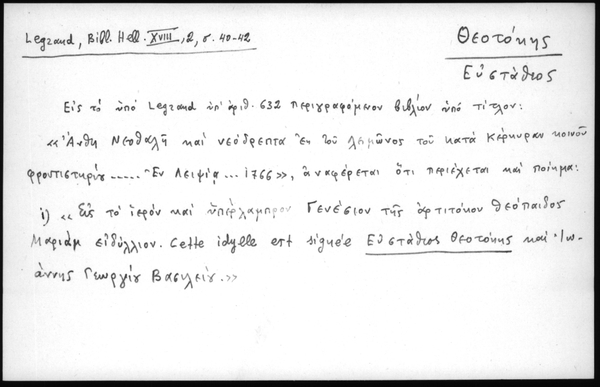 Legrand, Bibl. Hell. XVIII, 2, σ. 40-42
Θεοτόκης
Εὐστάθιος
Εἰς τὸ ὑπὸ Legrand ὑπ' ἀριθ. 632 περιγραφόμενον βιβλίον ὑπὸ τίτλον:
«Ἄνθη Νεοθαλῆ καὶ νεόδρεπτα ἐκ τοῦ λειμῶνος τοῦ κατὰ Κέρκυραν κοινοῦ
φροντιστηρίου ..... Ἐν Λειψίᾳ ... 1766», ἀναφέρεται ὅτι περιέχεται καὶ ποίημα:
1) «Εἰς τὸ ἱερὸν καὶ ὑπέρλαμπρον Γενέσιον τῆς ἀρτιτόκου θεόπαιδος
Μαριὰμ εἰδύλλιον. Cette idylle est signée Εὐστάθιος Θεοτόκης καὶ Ἰω-
άννης Γεωργίου Βασιλείου.»